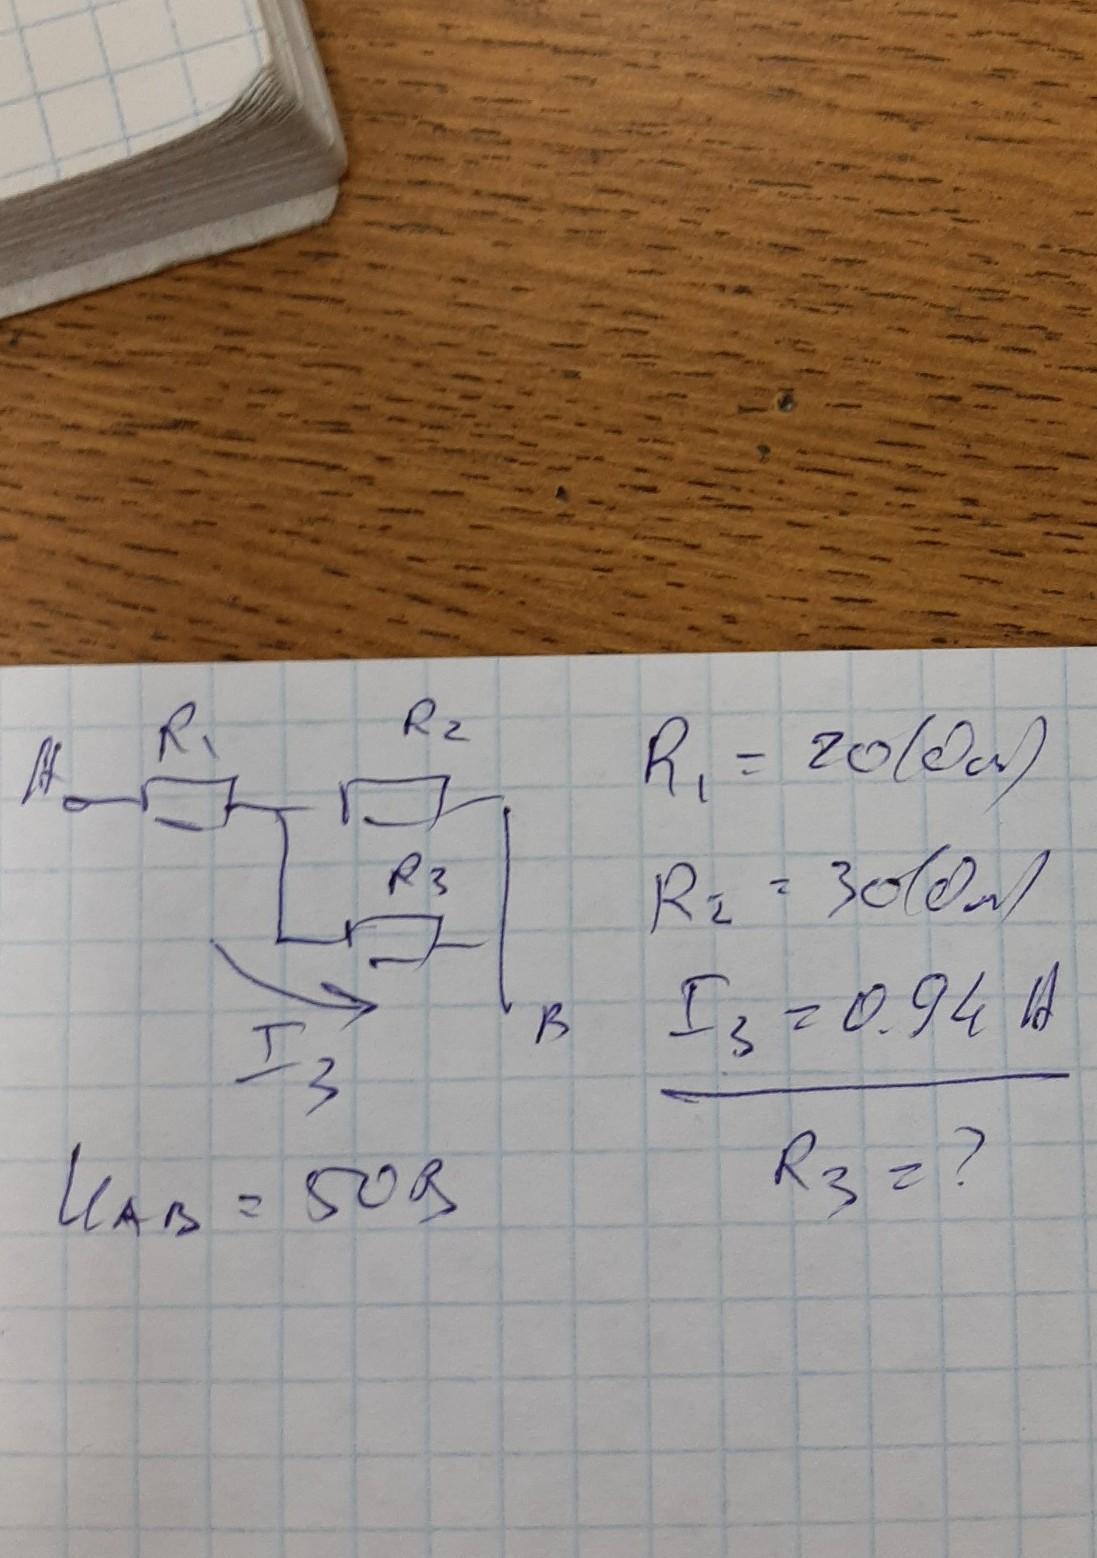 R1 R2
A
R3
I3
B
UAB = 50В
R1 = 20(Ом)
R2 = 30(Ом)
I3 = 0.94 A
R3 = ?